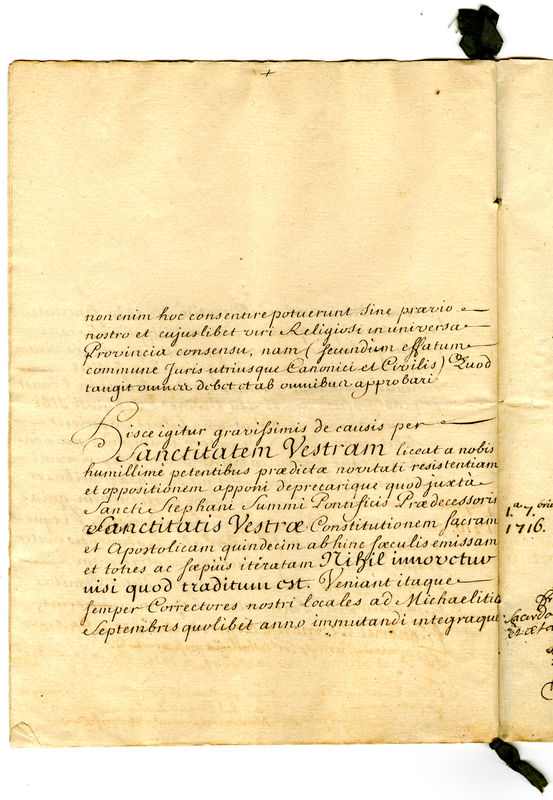 non enim hoc consentire potuerunt sine prævio
nostro et cujuslibet viri Religiosi in universa
Provincia consensu, nam (secundum effatum
commune Juris utriusque Canonici et Civilis) Quod
tangit omnes debet et ab omnibus approbari
Hisce igitur gravissimis de causis per
Sanctitatem Vestram liceat a nobis
humillimè petentibus prædictæ novitati resistentiam
et oppositionem apponi deprecarique quod juxta
Sancti Stephani Summi Pontificis Prædecessoris
Sanctitatis Vestræ Constitutionem sacram
et Apostolicam quindecim abhinc sæculis emissam
et toties ac sæpiùs iteratam Nihil innovetur
nisi quod traditum est. Veniant itaque
semper Correctores nostri locales ad Michaelitia
Septembris quolibet anno immutandi integraque
1.a 7.bris
1716.